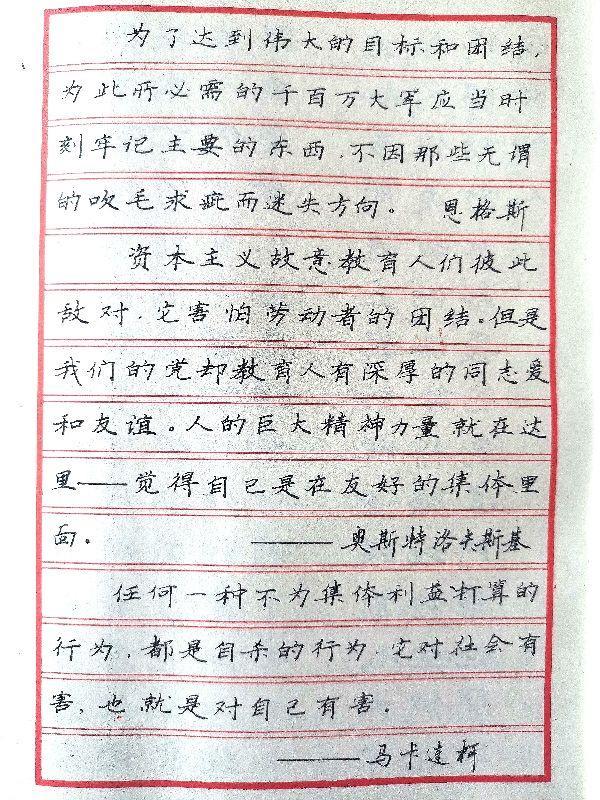 为了达到伟大的目标和团结，
为此所必需的千百万大军应当时
刻牢记主要的东西，不因那些无谓
的吹毛求疵而迷失方向。 恩格斯
资本主义故意教育人们彼此
敌对，它害怕劳动者的团结。但是
我们的党却教育人有深厚的同志爱
和友谊。人的巨大精神力量就在这
里——觉得自己是在友好的集体里
面。 ——奥斯特洛夫斯基
任何一种不为集体利益打算的
行为，都是自杀的行为，它对社会有
害，也就是对自己有害。
——马卡连柯